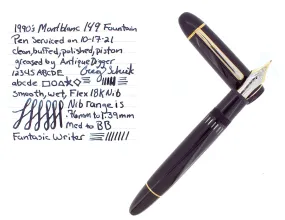 1990's Montblanc 149 Fountain
Pen Serviced on 10-17-21
clean, buffed, polished, piston
greased by Antique Digger
12345 ABCDE
abcde
smooth, wet, Flex 18K Nib
Nib range is
.76mm to 1.39mm
Med to BB
Fantasic Writer